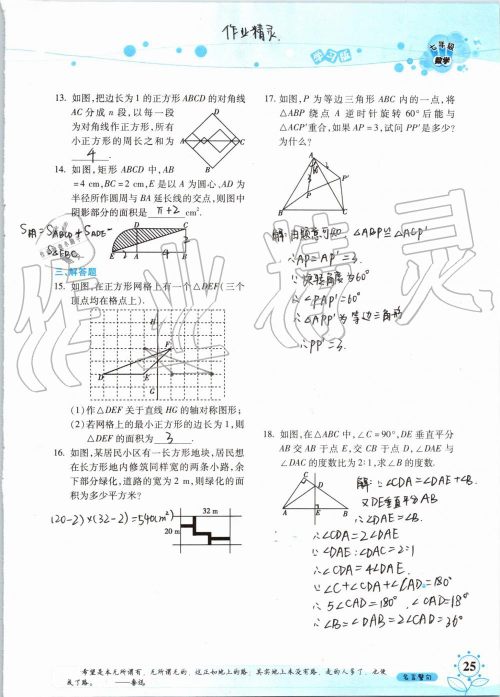 作业精灵
学习版
七年级
数学
13. 如图,把边长为1的正方形ABCD的对角线
AC分成n段,以每一段
为对角线作正方形,所有
小正方形的周长之和为
4 .
14. 如图,矩形ABCD中,AB
=4 cm,BC=2 cm,E是以A为圆心,AD为
半径所作圆周与BA延长线的交点,则图中
阴影部分的面积是 π+2 cm².
S阴=SABCD+SADE-
SEBC
E 2 A 4 B
三、解答题
15. 如图,在正方形网格上有一个△DEF(三个
顶点均在格点上).
H
F
D
E
G
(1)作△DEF关于直线HG的轴对称图形;
(2)若网格上的最小正方形的边长为1,则
△DEF的面积为 3 .
16. 如图,某居民小区有一长方形地块,居民想
在长方形地内修筑同样宽的两条小路,余
下部分绿化,道路的宽为2 m,则绿化的面
积为多少平方米?
(20-2)×(32-2)=540(m²)
32 m
20 m
17. 如图,P为等边三角形ABC内的一点,将
△ABP绕点A逆时针旋转60°后能与
△ACP′重合,如果AP=3,试问PP′是多少?
为什么?
A
P′
P
B
C
解:由题意可知 △ABP≌△ACP′
∴AP=AP′=3.
∵旋转角度为60°
∴∠PAP′=60°
∴△APP′为等边三角形
∴PP′=3.
18. 如图,在△ABC中,∠C=90°,DE垂直平分
AB交AB于点E,交CB于点D,∠DAE与
∠DAC的度数比为2:1,求∠B的度数.
C
D
A E B
解:∵∠CDA=∠DAE+∠B.
又DE垂直平分AB
∴∠DAE=∠B.
∴∠CDA=2∠DAE
∵∠DAE:∠DAC=2:1
∴∠CDA=4∠DAE.
∵∠C+∠CDA+∠CAD=180°
∴5∠CAD=180°,∠CAD=18°
∴∠B=∠DAB=2∠CAD=36°
希望是本无所谓有,无所谓无的.这正如地上的路;其实地上本没有路,走的人多了,也便
成了路。——鲁迅
名言警句
25
作业精灵